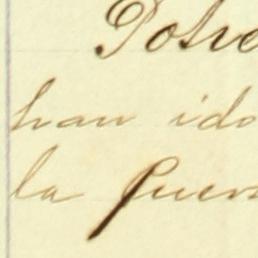 Potre
han ido
la fuer